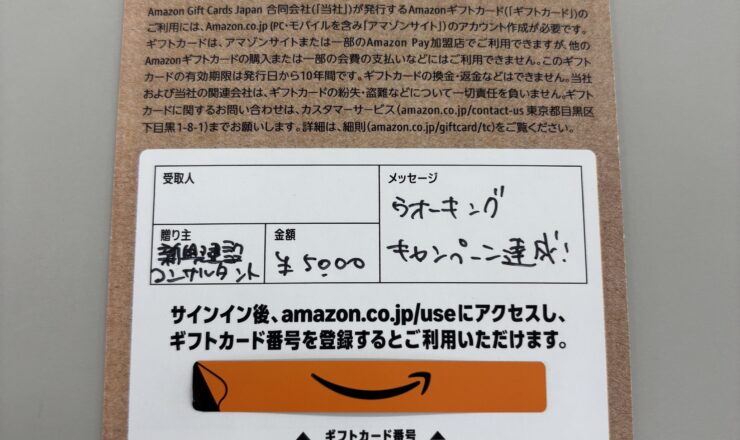 Amazon Gift Cards Japan 合同会社(「当社」)が発行するAmazonギフトカード(「ギフトカード」)の
ご利用には、Amazon.co.jp (PC・モバイルを含み「アマゾンサイト」)のアカウント作成が必要です。
ギフトカードは、アマゾンサイトまたは一部のAmazon Pay加盟店でご利用できますが、他の
Amazonギフトカードの購入または一部の会費の支払いなどにはご利用できません。このギフト
カードの有効期限は発行日から10年間です。ギフトカードの換金・返金などはできません。当社
および当社の関連会社は、ギフトカードの紛失・盗難などについて一切責任を負いません。ギフト
カードに関するお問い合わせは、カスタマーサービス(amazon.co.jp/contact-us 東京都目黒区
下目黒1-8-1)までお願いします。詳細は、細則(amazon.co.jp/giftcard/tc)をご覧ください。
受取人
メッセージ
ウオーキング
キャンペーン達成!
贈り主
コンサルタント
金額
¥5000
サインイン後、amazon.co.jp/useにアクセスし、
ギフトカード番号を登録するとご利用いただけます。
ギフトカード番号